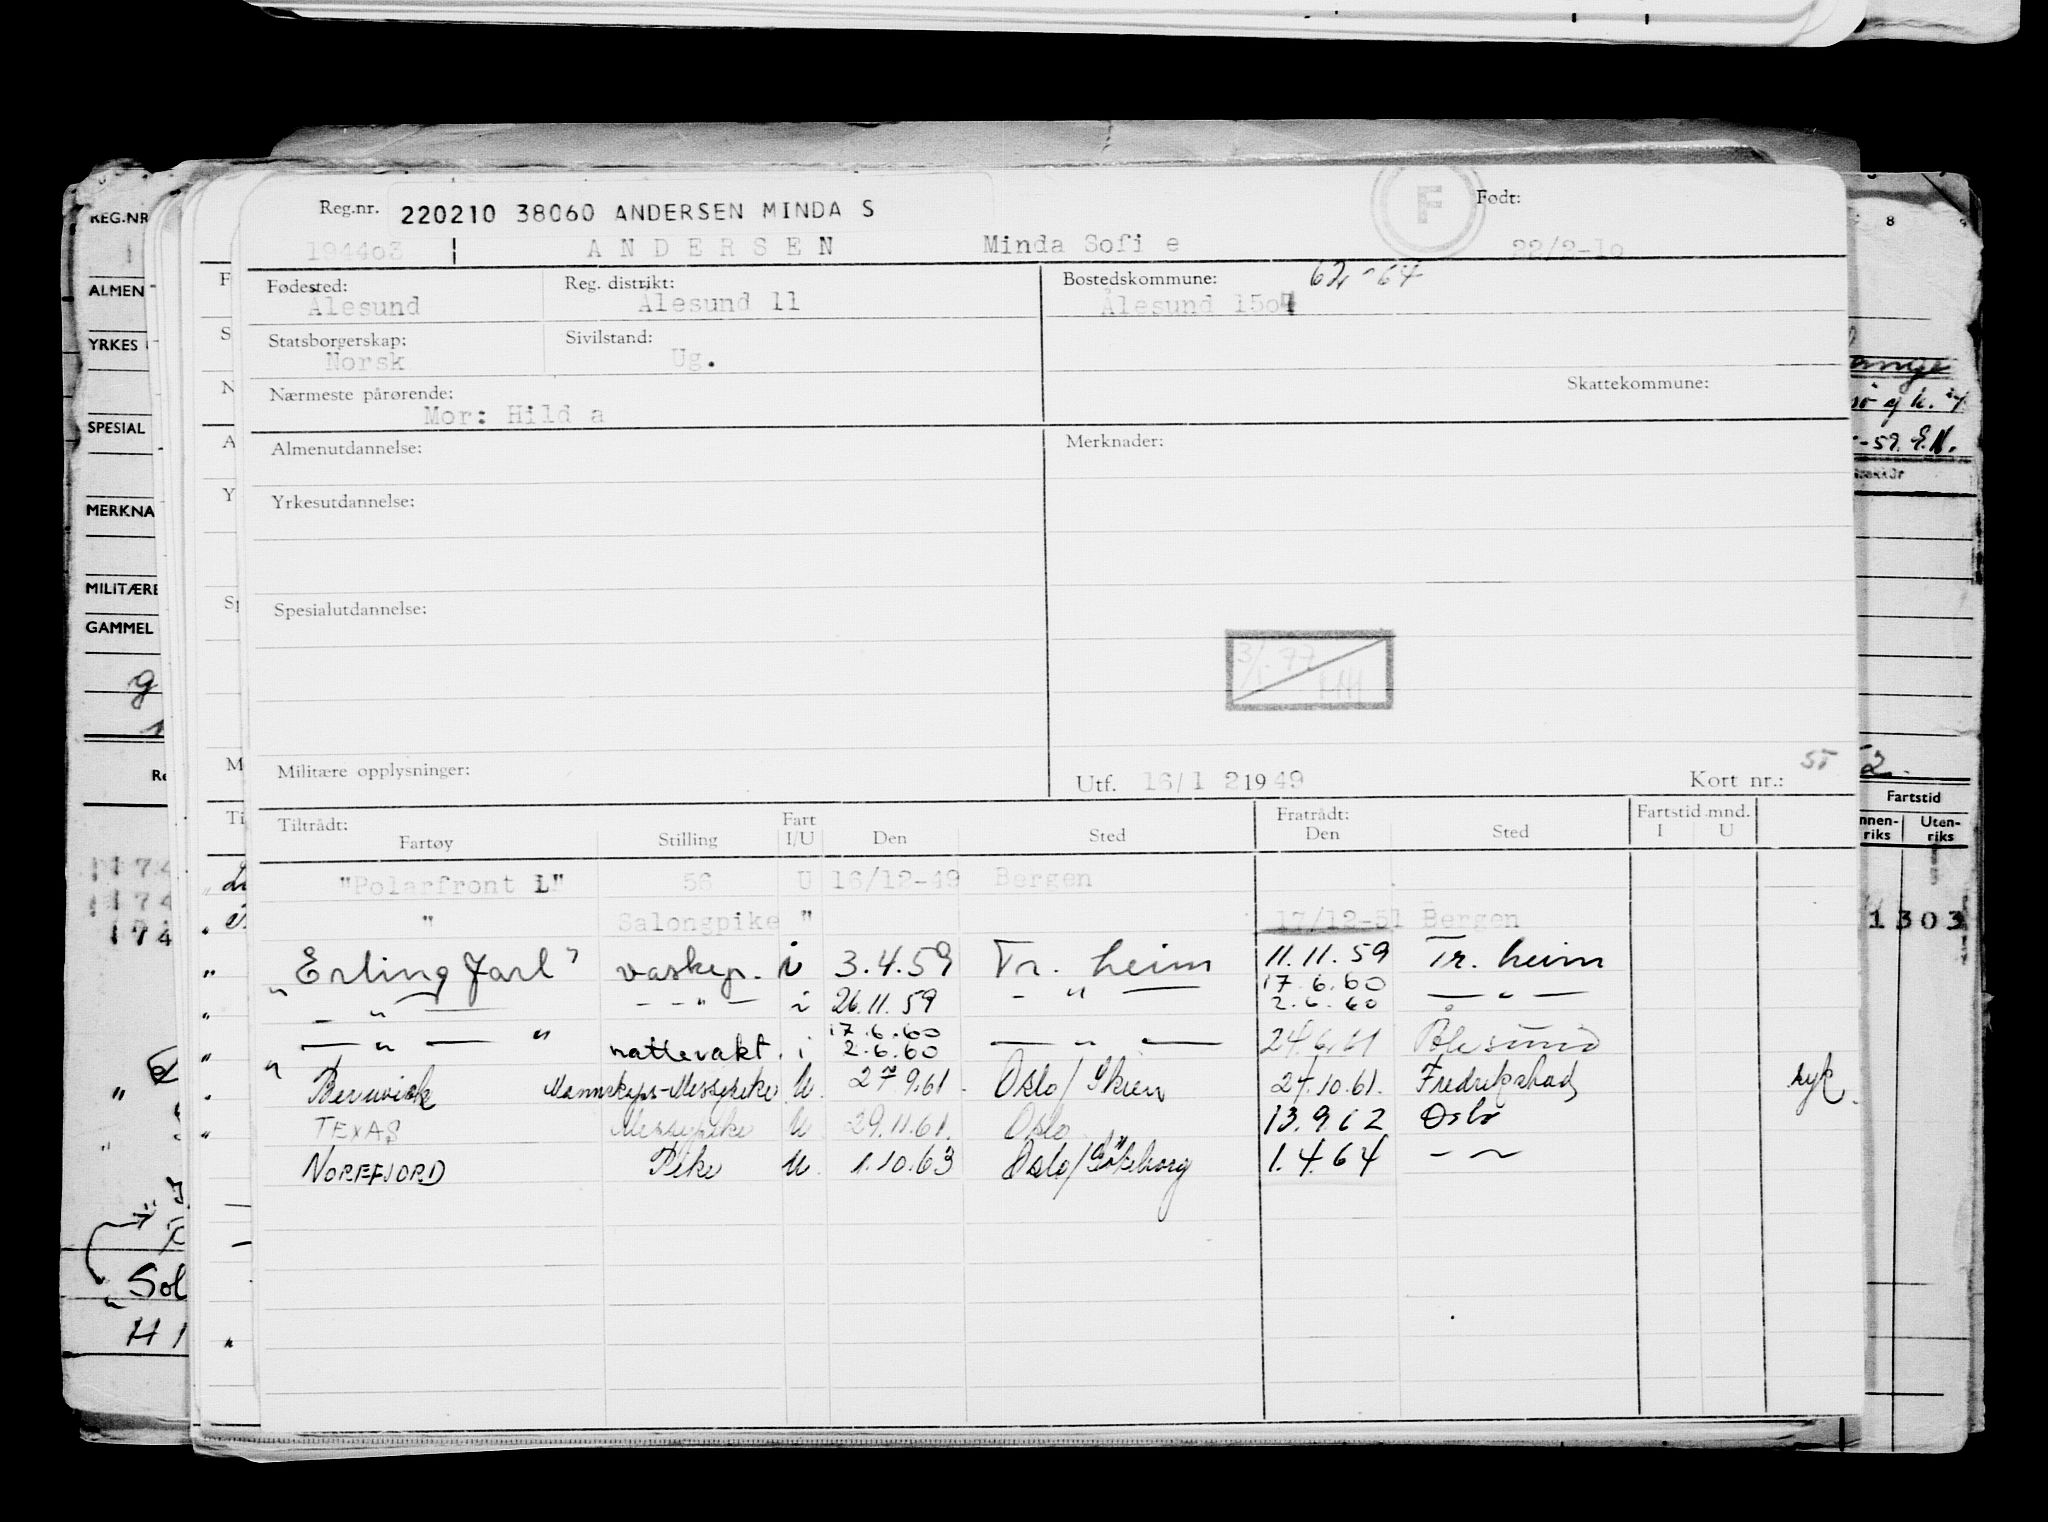 Reg.nr. 220210 38060 ANDERSEN MINDA S F Født:
194403 ANDERSEN Minda Sofi e 22/2-10
Fødested: Reg. distrikt: Bostedskommune: 62-64
Ålesund Ålesund 11 Ålesund 1504
Statsborgerskap: Sivilstand:
Norsk Ug.
Nærmeste pårørende: Skattekommune:
Mor: Hild a
Almenutdannelse: Merknader:
Yrkesutdannelse:
Spesialutdannelse:
3/1.77
Militære opplysninger: Utf. 16/1 21949 Kort nr.:
Tiltrådt: Fart Fratrådt: Fartstid mnd.
Fartøy Stilling I/U Den Sted Den Sted I U
"Polarfront I" 56 U 16/12-49 Bergen
" Salongpike " 17/12-51 Bergen
"Erling Jarl" vaskep. i 3.4.59 Tr. heim 11.11.59 Tr. heim
— " — — — " — i 26.11.59 — " — 17.6.60 2.6.60 — " —
" — " — " nattevakt. i 17.6.60 2.6.60 — " — 24.6.61 Ålesund
Berwick Mannskaps-Messepike U. 27 9.61. Oslo/Skien 24.10.61. Fredrikstad syk.
TEXAS Messepike U 29.11.61. Oslo 13.9.62 Oslo
NOREFJORD Pike U. 1.10.63 Oslo/Göteborg 1.4.64 — " —
REG.NR
ALMEN
YRKES
SPESIAL
MERKNA
MILITÆRE
GAMMEL
174
174
174
Sol
H 1
8
-59. E.N.
Fartstid
nnen-riks Uten-riks
1303